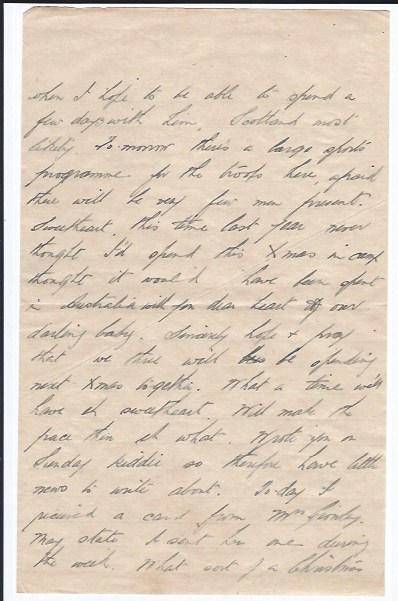 when I hope to be able to spend a
few days with him, Scotland most
likely. To-morrow there's a large sports
programme for the troops here, afraid
there will be very few men present.
Sweetheart, this time last year never
thought I'd spend this Xmas in camp
thought it would have been spent
in Australia with you dear heart & our
darling baby. Sincerely hope & pray
that we three will be spending
next Xmas together. What a time we'll
have eh sweetheart. Will make the
pace then eh what. Wrote you on
Sunday kiddie so therefore have little
news to write about. To-day I
received a card from Mrs
may state I sent her one during
the week. What sort of a Christmas